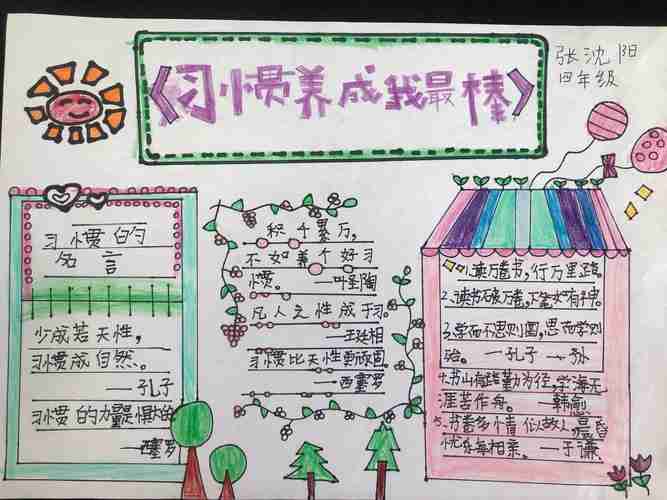 《习惯养成我最棒》
张沈阳
四年级
习惯的
名言
少成若天性，
习惯成自然。
——孔子
习惯的力量是惧的
——西塞罗
积千累万，
不如养个好习
惯。——叶圣陶
凡人之性成于习。
——王廷相
习惯比天性更顽固。
——西塞罗
1.读万卷书，行万里路
2.读书破万卷，下笔如有神。
3.学而不思则罔，思而不学则
殆。——孔子
4.书山有路勤为径，学海无
涯苦作舟。——韩愈
5.书卷多情似故人，晨昏
忧乐每相亲。——于谦